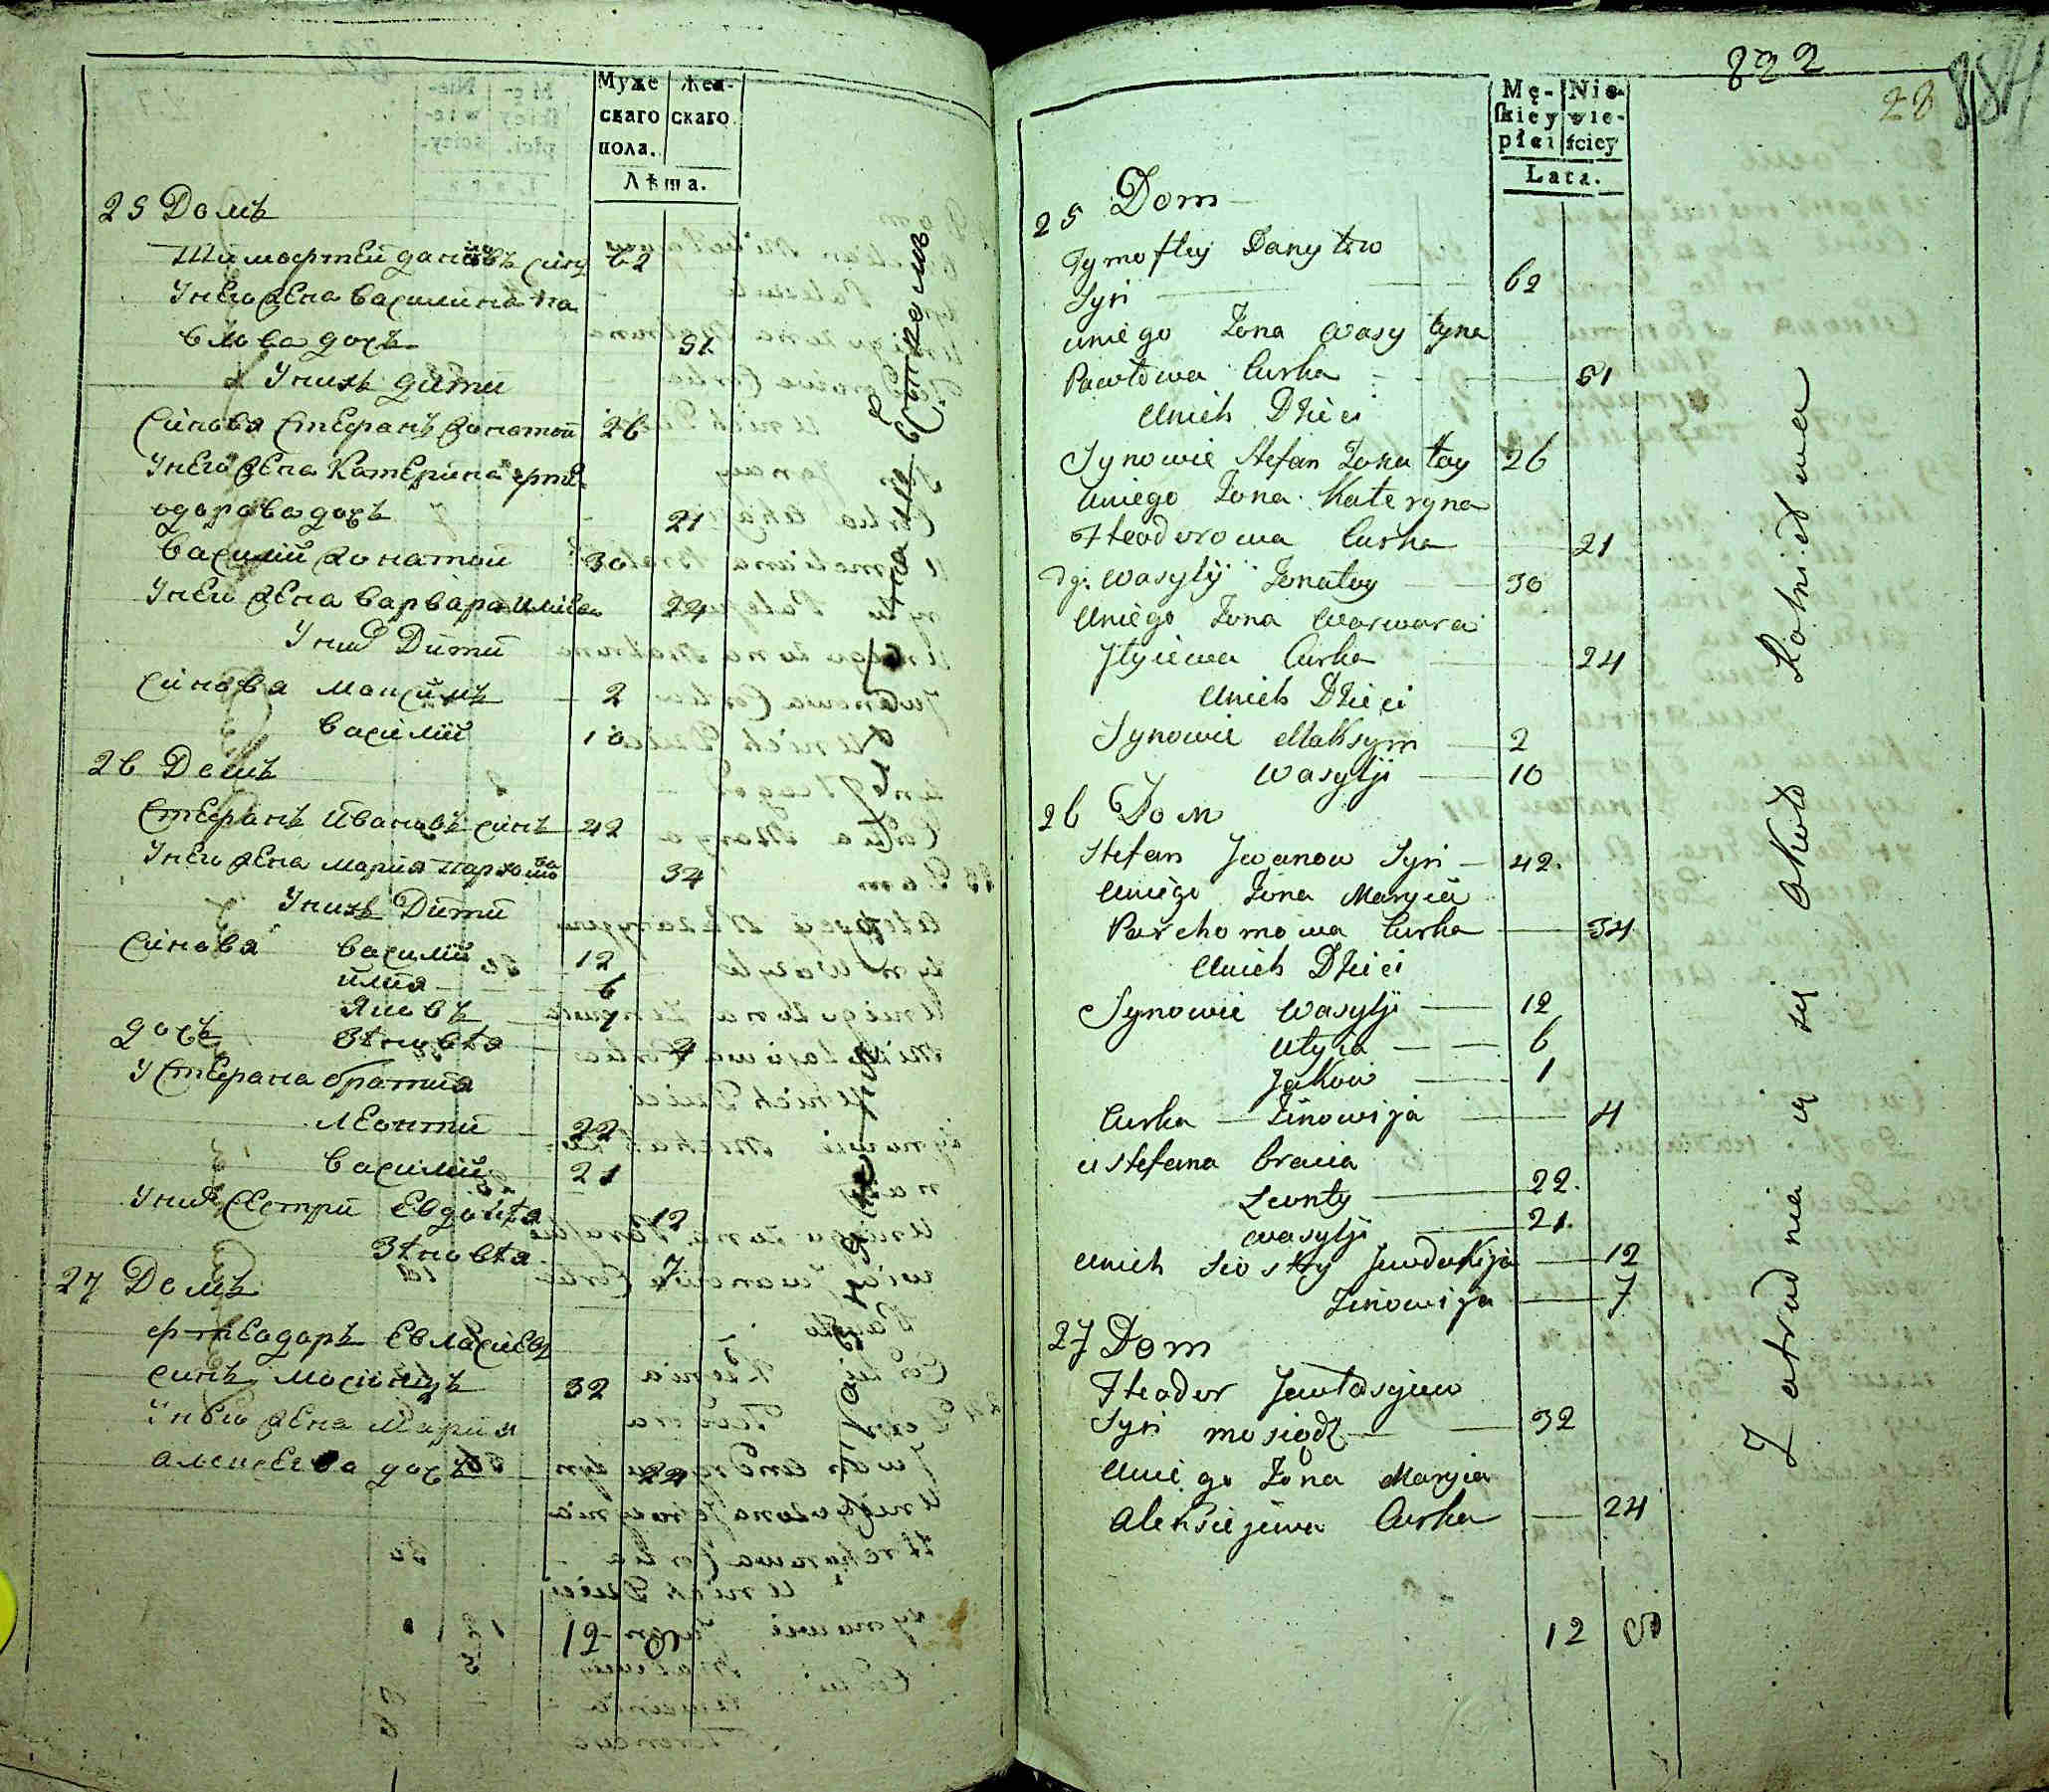 Муже
скаго
пола.
Жен-
скаго
Лѣта.
25 Домъ
Тимофтей данилов синъ 62
Унего жена василина па
влова дочъ 51
Унихъ дити
Синовя Стефанъ жонатой 26
Унего жена Катерина фте
одорова дочъ 21
василий жонатой 30
Унего жена варвара илиева 24
Уних Дити
Синовя максимъ 2
василий 10
26 Домъ
Стефанъ ивановъ синъ 42
Унего жена мария пархомова 34
Унихъ Дити
Синовя василий 12
илия 6
яковъ 1
дочъ Зѣновѣя 4
У Стефана братия
леонтий 22
василий 21
Уних Сестри Евдокѣя 12
Зѣновѣя 7
27 Домъ
фтеодоръ Евласиев
синъ мосиондзъ 32
Унего жена Мария
алексеева дочъ 24
12 9
822
28
884
Mę-
skiey
płci
Nie-
wie-
ściey
Lata.
25 Dom
Tymoftey Daniłow
Syn 62
uniego Żona Wasylyna
Pawłowa Curka 51
Unich Dzieci
Synowie Stefan Żonatoy 26
Uniego Żona Kateryna
Fteodorowa Curka 21
dg. Wasylij Żonatoy 30
Uniego Żona Warwara
Jlyiewa Curka 24
Unich Dzieci
Synowie Maksym 2
Wasylji 10
26 Dom
Stefan Jwanow Syn 42.
Uniego Żona Maryia
Parchomowa Curka 34
Unich Dzieci
Synowie Wasylji 12
Jlyia 6
Jakow 1
Curka Zinowija 4
u Stefana bracia
Leonty 22.
Wasylji 21.
Unich Siostry Jewdokija 12
Zinowija 7
27 Dom
Fteodor Jewłasyjew
Syn mosiądz 32
Uniego Żona Maryia
Aleksiejewa Curka 24
12 9
Zatrudnia ią się około Rolnictwa